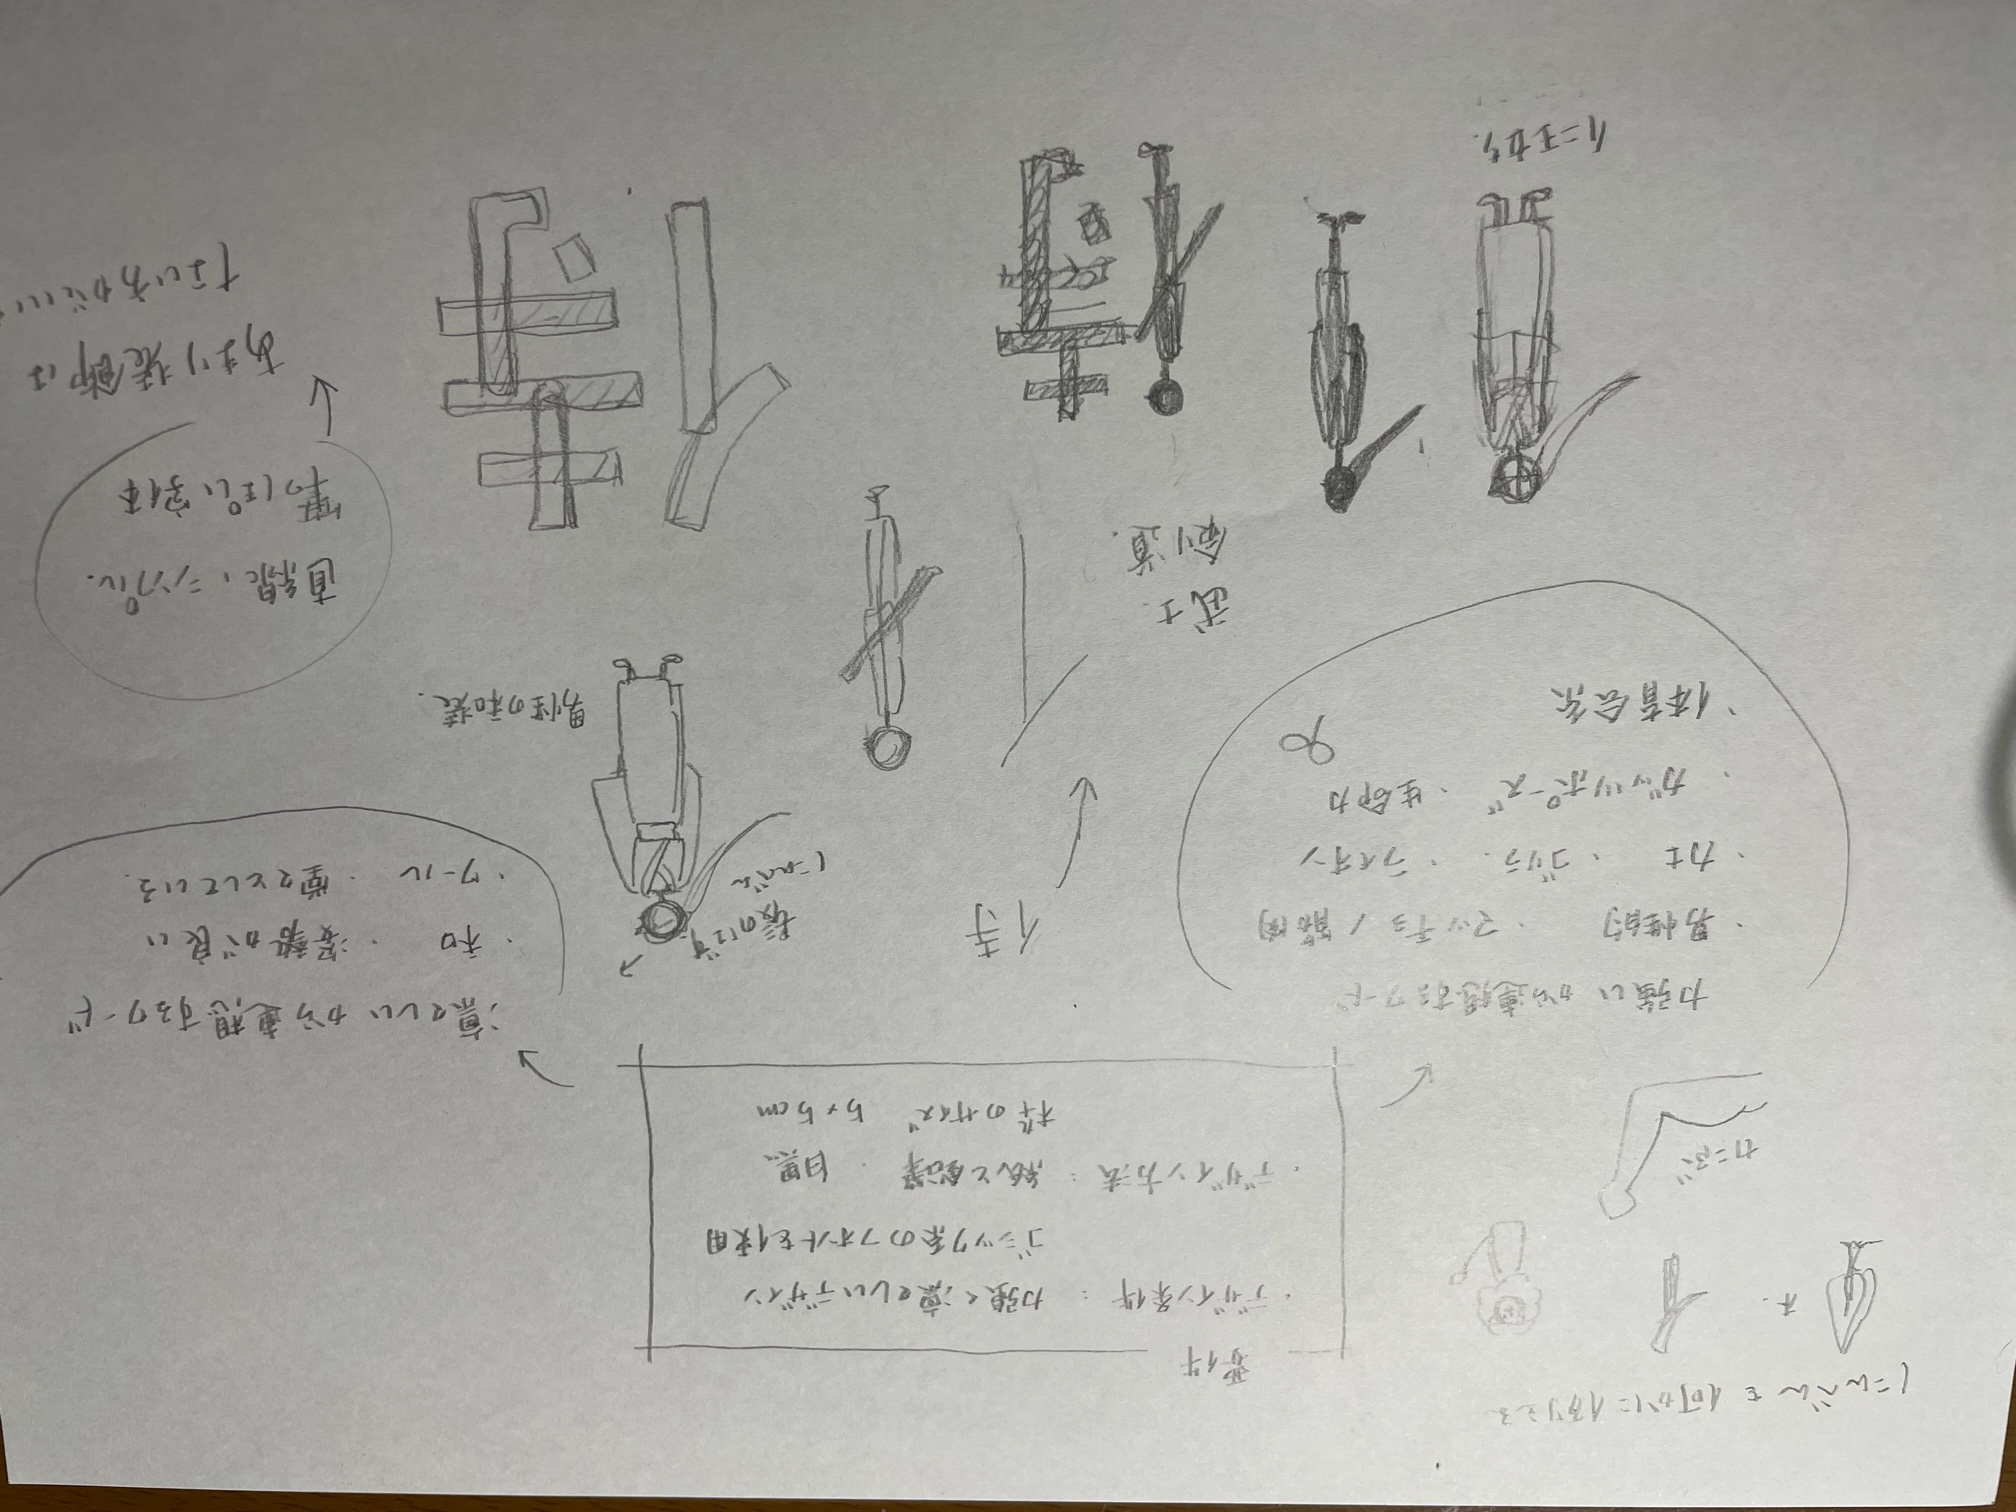 にんべんを何かに例える
木
力こぶ
要件
・デザイン条件：力強く凛々しいデザイン
ゴシック系のフォントを使用
・デザイン方法：紙と鉛筆・白黒
枠のサイズ 5×5cm
力強いから連想するワード
・男性的・マッチョ/筋肉
・力士・ゴリラ・ライオン
・ガッツポーズ・生命力
・体育会系
♂
凛々しいから連想するワード
・和・姿勢が良い
・クール・堂々としている
侍
武士
剣道
髪がにず
にんべん
男性の和装
直線、シンプル
軍っぽい字体
↓
あまり装飾は
ない方がいい
仁王立ち